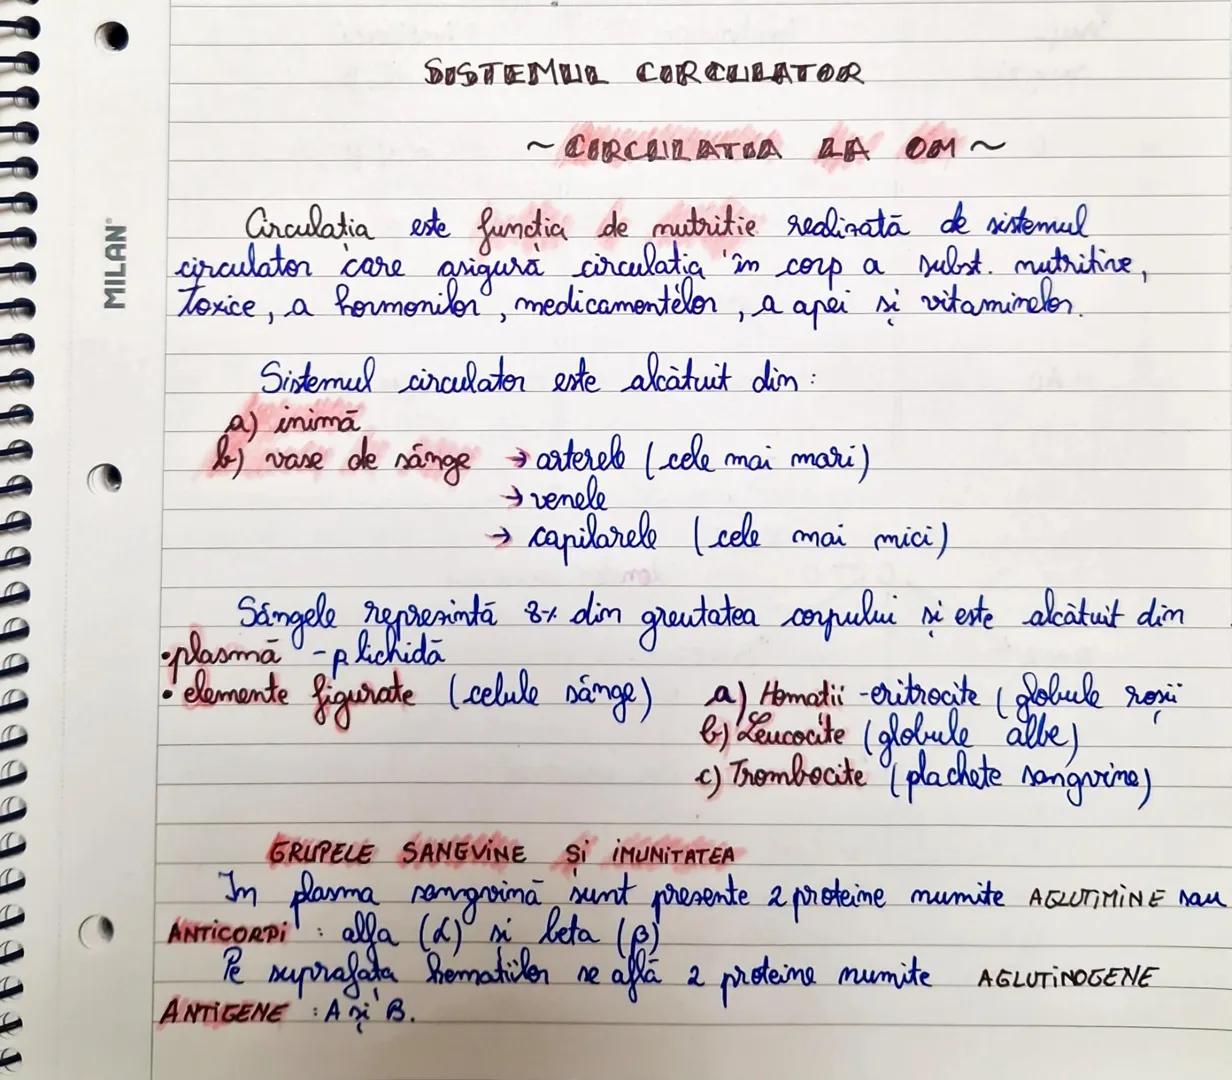 SISTEMUL CIRCULATOR
~ CIRCULATIA LA OM ~
MILAN
Circulația este funcția de nutriție realizată de sistemul
circulator care asigură circulația în corp a subst. nutritive,
toxice, a hormonilor, medicamentelor, a apei și vitaminelor.
Sistemul circulator este alcătuit din:
a) inimă
b) vase de sânge → arterele (cele mai mari)
→ venele
→ capilarele (cele mai mici)
Sângele reprezintă 8% din greutatea corpului și este alcătuit din
• plasmă - p lichidă
• elemente figurate (celule sânge) a) Hematii - eritrocite (globule roșii
b) Leucocite (globule albe)
c) Trombocite (plachete sangvine)
GRUPELE SANGVINE ȘI IMUNITATEA
In plasma sangvină sunt prezente 2 proteine numite AGLUTININE sau
ANTICORPI : alfa (α) și beta (β)
Pe suprafața hematiilor se află 2 proteine numite AGLUTINOGENE
ANTIGENE : A și B.